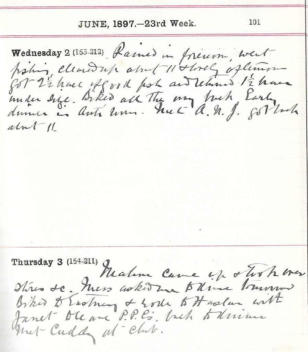 JUNE, 1897.—23rd Week. 101
Wednesday 2 (153-212) Rained in forenoon, went
fishing, cleared up about 11 & lovely afternoon
got 2½ brace, good fish and returned 1½ brace
under size. Biked all the way back. Early
dinner in Met A. N. J. got back
about 11.
Thursday 3 (154-211) Malone came up & took over
stores &c. Mess asked me to dine tomorrow
Biked to Eastney & rode to Haslar with
Janet P.P.Cs. back to dinner
met Cuddy at club.